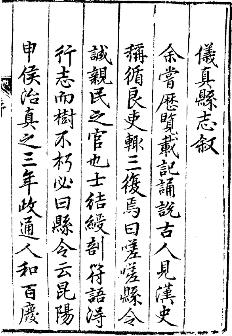 儀真縣志叙
余嘗歷覽載記誦說古人見漢史
稱循良吏輙三復焉曰嗟嗟縣令
誠親民之官也士結綬剖符詰淂
行志而樹不朽必曰縣令云昆陽
申侯治真之三年政通人和百廢